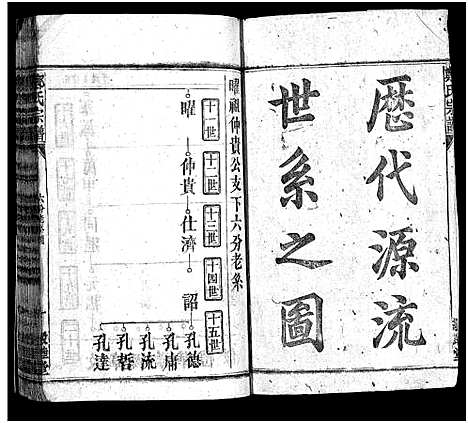 歷代源流
世系之圖
曜祖仲貴公支下六分老系
十一世
十二世
十三世
十四世
十五世
曜 仲貴 仕濟 詔
孔德
孔庸
孔流
孔哲
孔達
氏宗譜